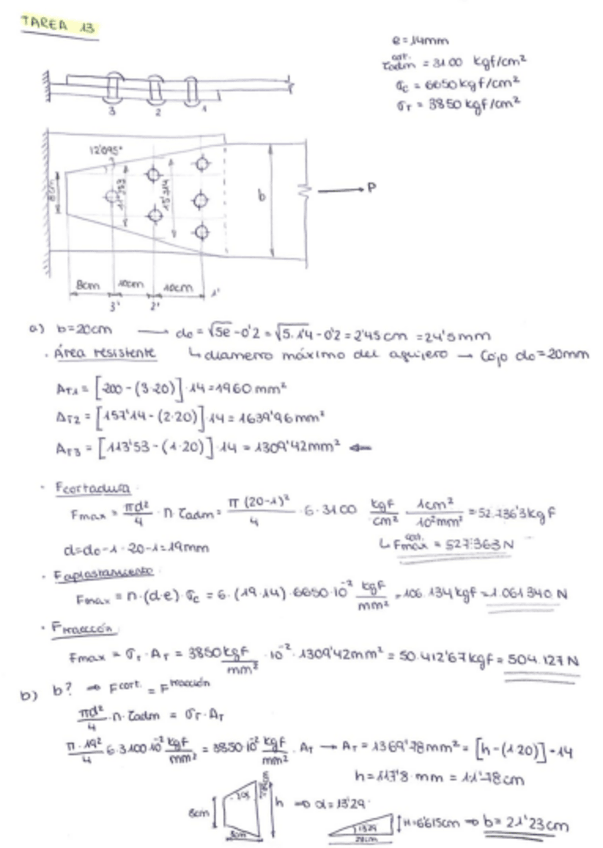 TAREA 13
e=14mm
τadm cort. = 3100 kgf/cm²
σc = 6650 kgf/cm²
σr = 3850 kgf/cm²
3 2 1
12'095°
8cm
b
P
8cm 10cm 10cm
3' 2' 1'
a) b=20cm → do = √5e - 0'2 = √5.1'4 - 0'2 = 2'45cm = 24'5mm
· Área resistente ↳ diámetro máximo del agujero → Cojo do=20mm
AT1 = [200 - (3·20)]·14 = 1960 mm²
AT2 = [157'14 - (2·20)]·14 = 1639'96mm²
AT3 = [113'53 - (1·20)]·14 = 1309'42mm² ⇐
· Fcortadura:
Fmax = πd²/4 · n · τadm = π(20-1)²/4 · 6·3100 kgf/cm² · 1cm²/10²mm² = 52.736'3kgf
d=do-1 = 20-1=19mm ↳ Fmax cort. = 527'363N
· Faplastamiento:
Fmax = n·(d·e)·σc = 6·(19·14)·6650·10⁻² kgf/mm² = 106.134kgf = 1.061340N
· Ftracción:
Fmax = σr·Ar = 3850 kgf/mm² · 10⁻² · 1309'42mm² = 50.412'67kgf = 504.127N
b) b? ⇒ Fcort. = Ftracción
πd²/4 · n · τadm = σr·Ar
π·19²/4 6·3100·10⁻² kgf/mm² = 3850·10⁻² kgf/mm² · AT → AT = 1369'78mm² = [h-(1·20)]·14
h=117'8 mm = 11'78cm
8cm h ⇒ α=13'29°
8cm
13'29 H=6'615cm ⇒ b=21'23cm
28cm